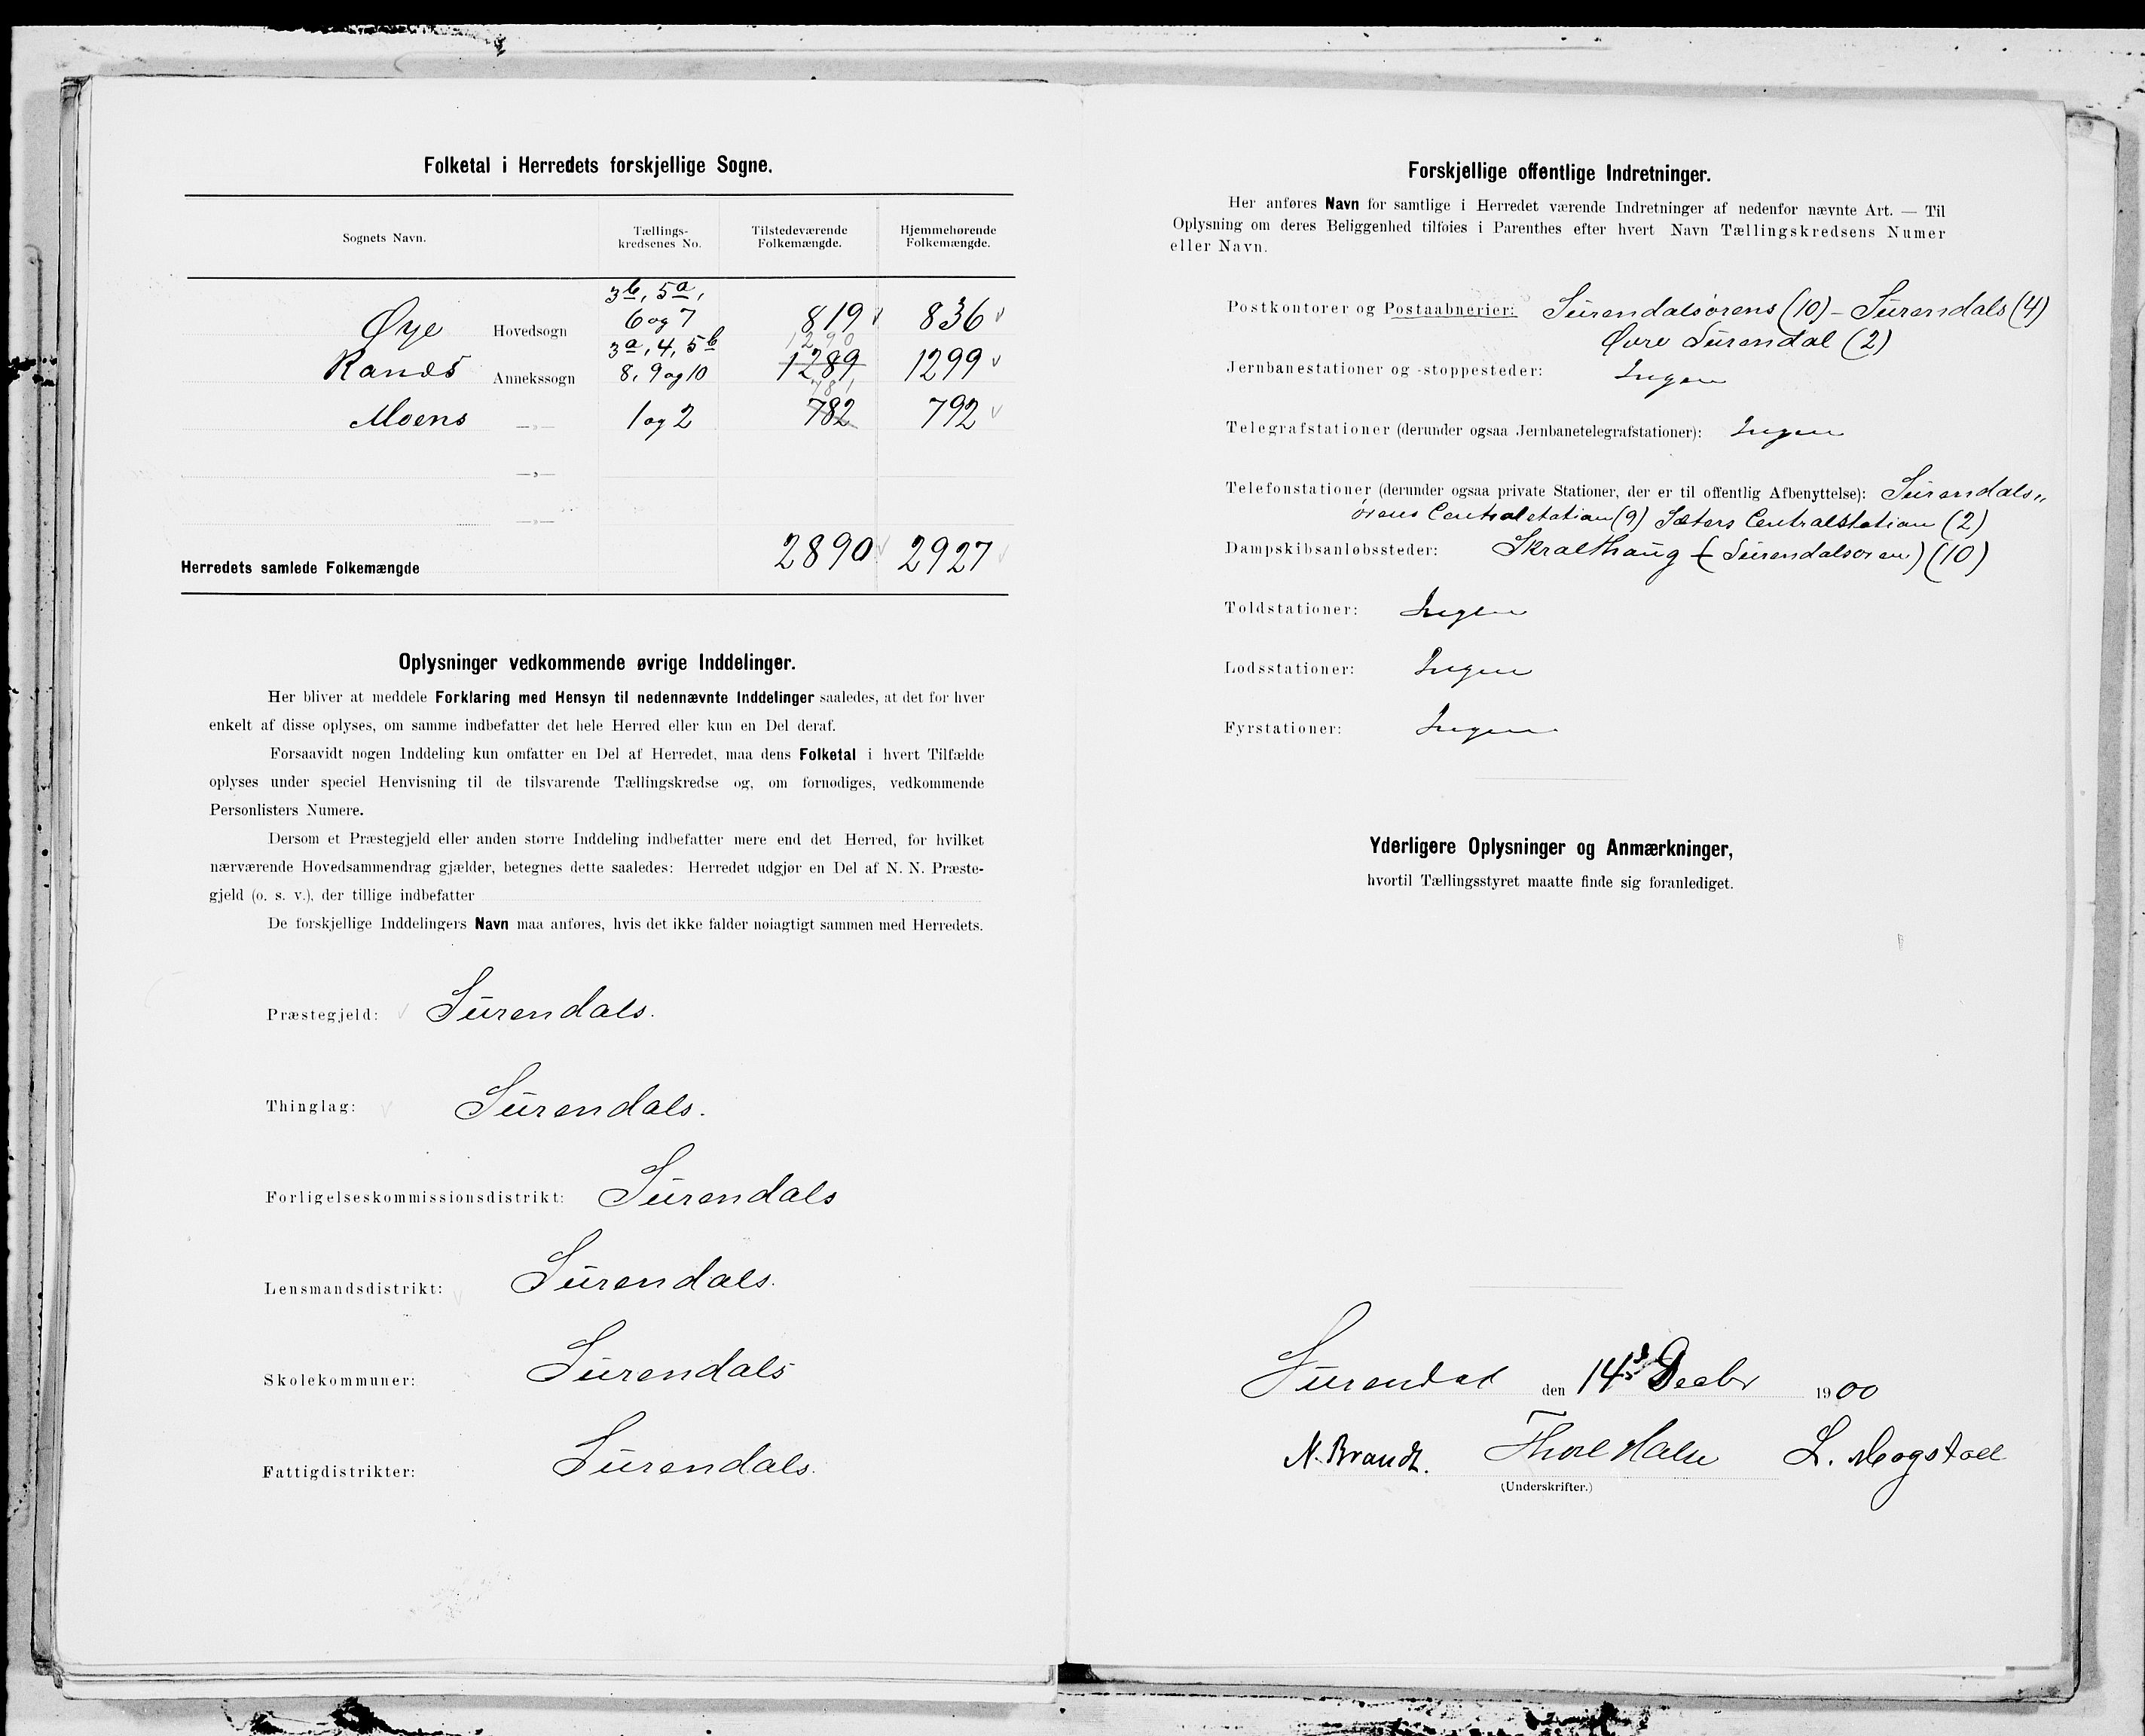 Folketal i Herredets forskjellige Sogne.
Sognets Navn.
Tællings-
kredsenes No.
Tilstedeværende
Folkemængde.
Hjemmehørende
Folkemængde.
Øye Hovedsogn 3b, 5a, 6 og 7 819 836
Ranæs Annekssogn 3a, 4, 5b 8, 9 og 10 1290 1289 1299
Moens —„— 1 og 2 781 782 792
—„—
—„—
Herredets samlede Folkemængde 2890 2927
Oplysninger vedkommende øvrige Inddelinger.
Her bliver at meddele Forklaring med Hensyn til nedennævnte Inddelinger saaledes, at det for hver
enkelt af disse oplyses, om samme indbefatter det hele Herred eller kun en Del deraf.
Forsaavidt nogen Inddeling kun omfatter en Del af Herredet, maa dens Folketal i hvert Tilfælde
oplyses under speciel Henvisning til de tilsvarende Tællingskredse og, om fornødiges, vedkommende
Personlisters Numere.
Dersom et Præstegjeld eller anden større Inddeling indbefatter mere end det Herred, for hvilket
nærværende Hovedsammendrag gjælder, betegnes dette saaledes: Herredet udgjør en Del af N. N. Præste-
gjeld (o. s. v.), der tillige indbefatter
De forskjellige Inddelingers Navn maa anføres, hvis det ikke falder nøiagtigt sammen med Herredets.
Præstegjeld: Surendals.
Thinglag: Surendals.
Forligelseskommissionsdistrikt: Surendals
Lensmandsdistrikt: Surendals.
Skolekommuner: Surendals
Fattigdistrikter: Surendals.
Forskjellige offentlige Indretninger.
Her anføres Navn for samtlige i Herredet værende Indretninger af nedenfor nævnte Art. — Til
Oplysning om deres Beliggenhed tilføies i Parenthes efter hvert Navn Tællingskredsens Numer
eller Navn.
Postkontorer og Postaabnerier: Surendalsørens (10) – Surendals (4)
Øvre Surendal (2)
Jernbanestationer og -stoppesteder: Ingen
Telegrafstationer (derunder ogsaa Jernbanetelegrafstationer): Ingen
Telefonstationer (derunder ogsaa private Stationer, der er til offentlig Afbenyttelse): Surendals„
ørens Centralstation (9) Sæters Centralstation (2)
Dampskibsanløbssteder: Skralthaug (Surendalsøren) (10)
Toldstationer: Ingen
Lodsstationer: Ingen
Fyrstationer: Ingen
Yderligere Oplysninger og Anmærkninger,
hvortil Tællingsstyret maatte finde sig foranlediget.
Surendal den 14 Decbr 1900
N. Brandt. Thore Halse L. Mogstad
(Underskrifter.)